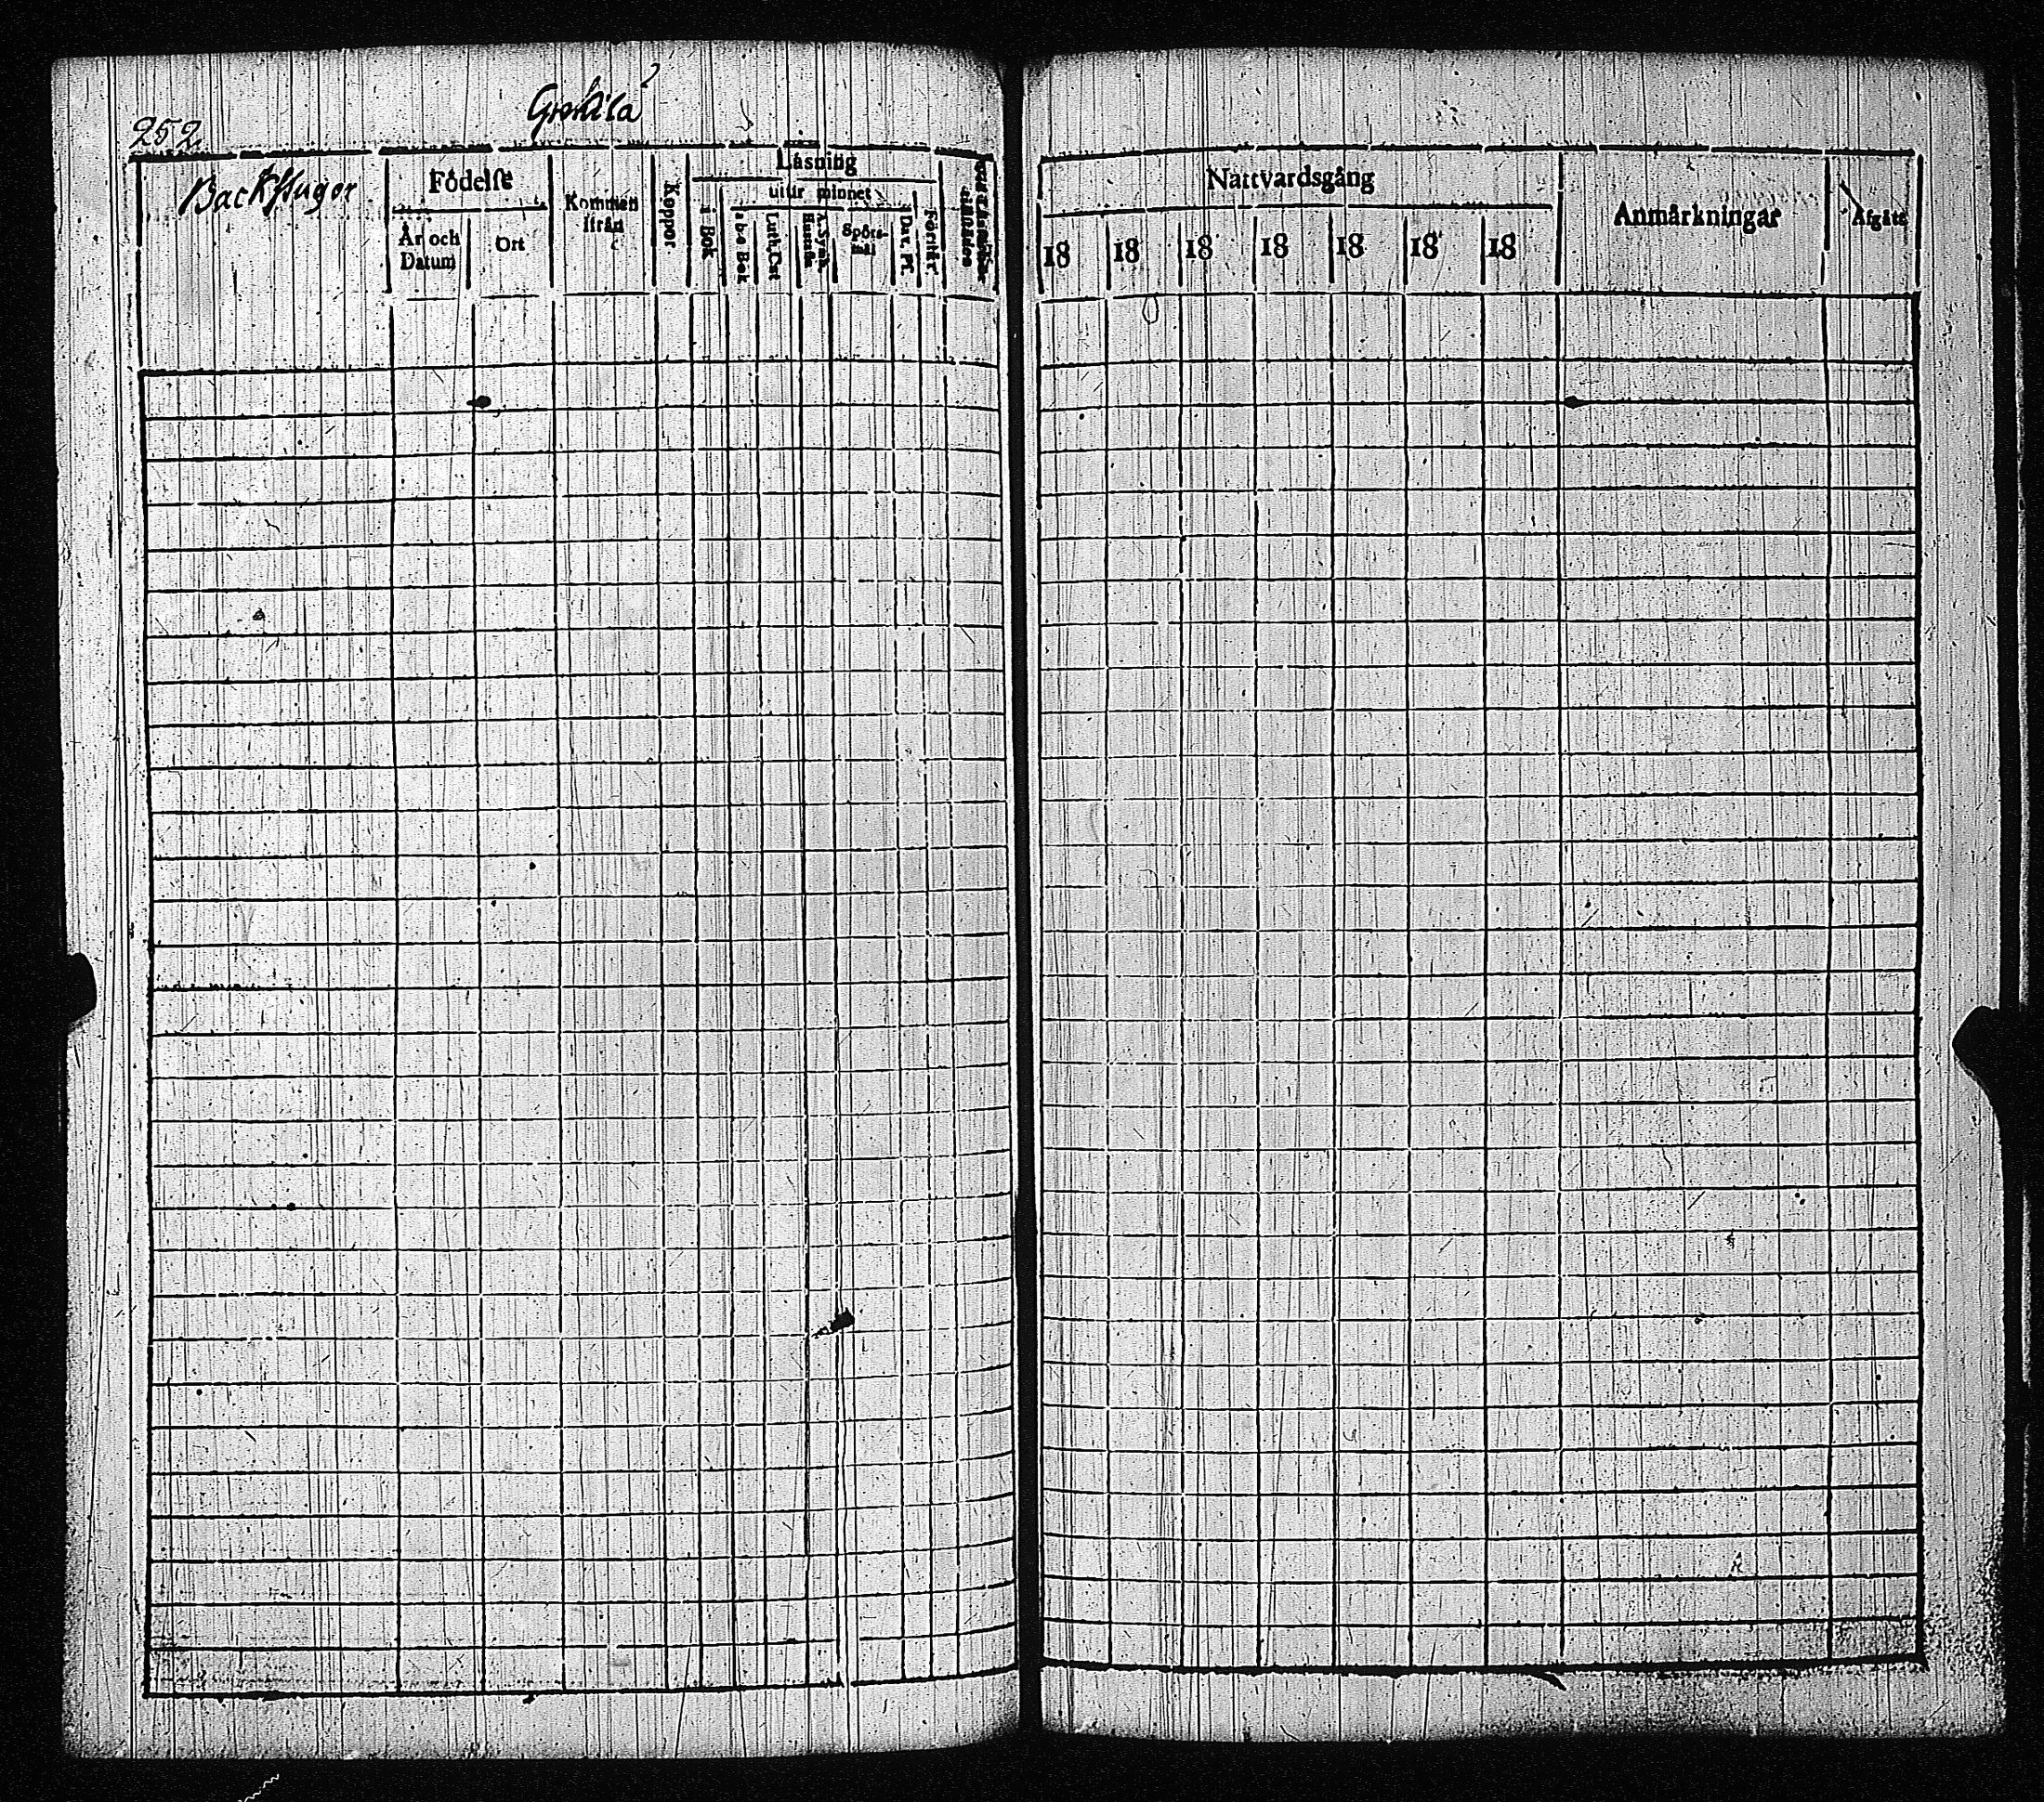 252
Backstugor
Födelse
År och Datum
Ort
Kommen ifrån
Koppor
Läsning
i Bok
utur minnet
a b c Bok
Luth. Cat
A. Symb. Hustafla
Spörsmål
Dav. Ps.
Förstår
Nattvardsgång
18 18 18 18 18 18 18
Anmärkningar
Afgått